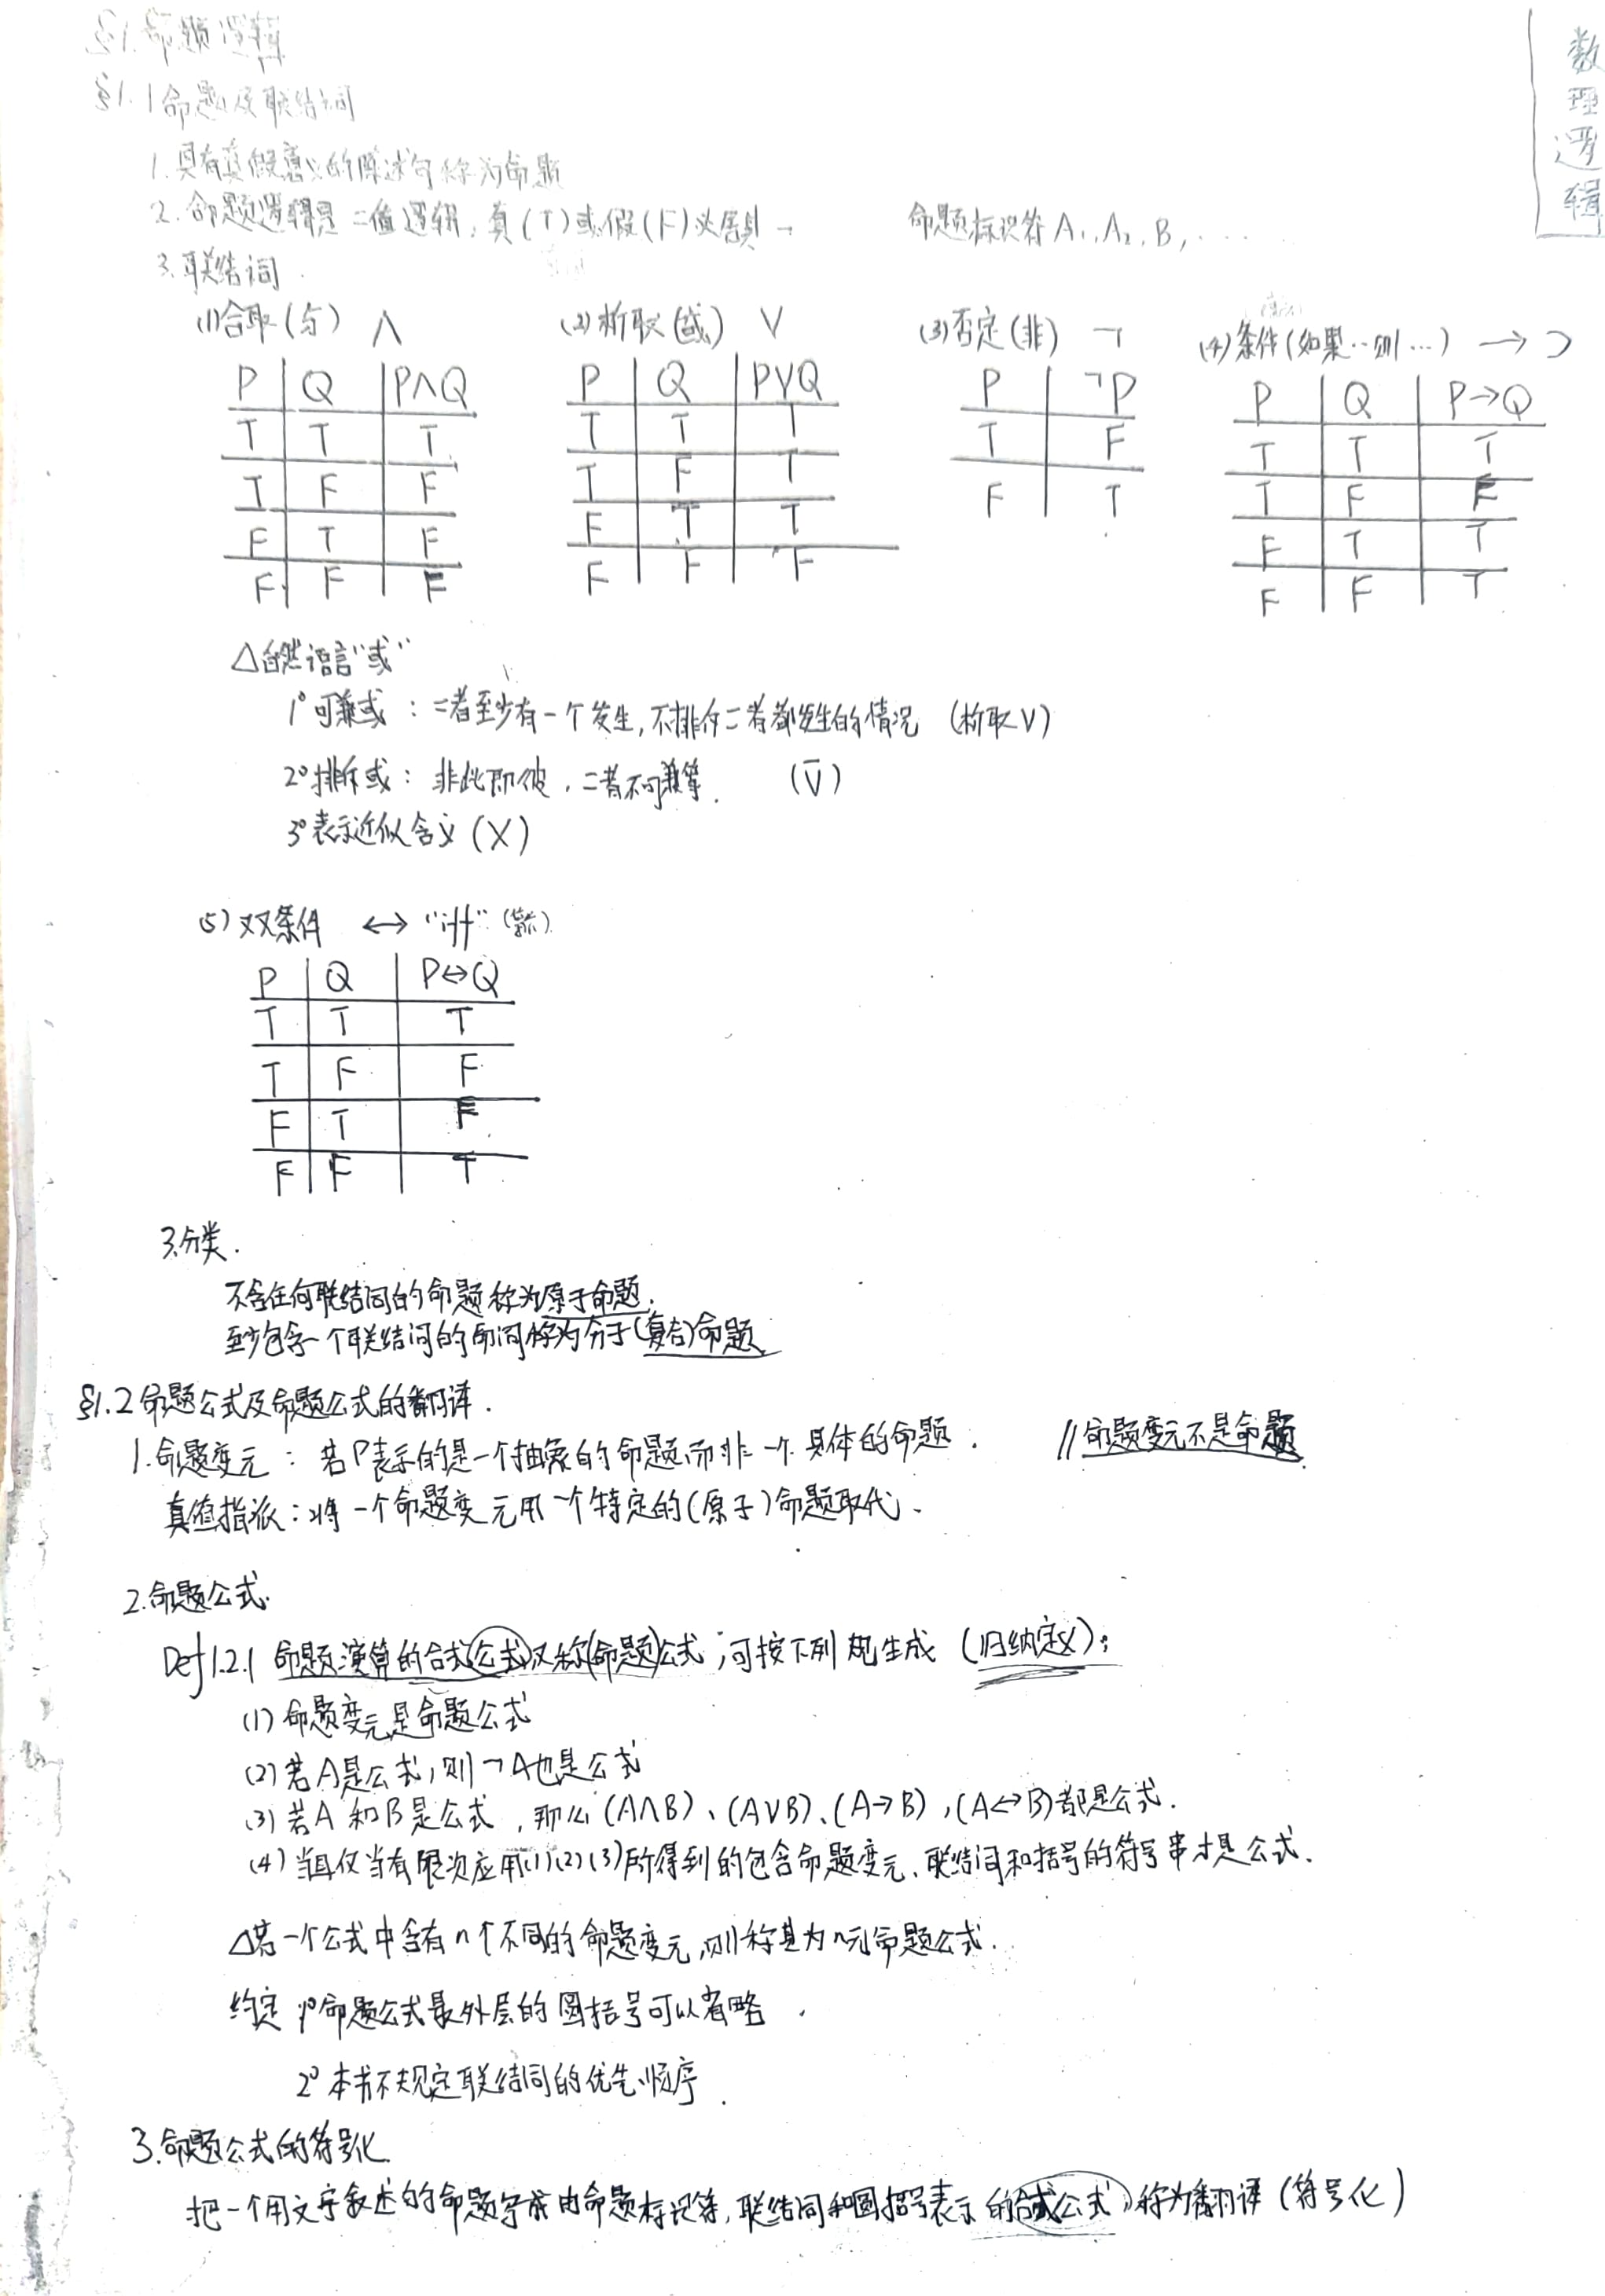 数理逻辑
§1. 命题逻辑
§1.1 命题及联结词
1. 具有真假意义的陈述句称为命题
2. 命题逻辑是二值逻辑, 真(T)或假(F)必居其一 命题标识符 A₁, A₂, B, ...
3. 联结词
(1) 合取(与) ∧ (2) 析取(或) ∨ (3) 否定(非) ¬ (4) 条件(如果…则…) → ⊃
P Q P∧Q P Q P∨Q P ¬P P Q P→Q
T T T T T T T F T T T
T F F T F T F T T F F
F T F F T T F T T
F F F F F F F F T
△自然语言"或"
1° 可兼或: 二者至少有一个发生, 不排斥二者都发生的情况 (析取∨)
2° 排斥或: 非此即彼, 二者不可兼得. (⊽)
3° 表示近似含义 (X)
(5) 双条件 ↔ "iff"
P Q P↔Q
T T T
T F F
F T F
F F T
3. 分类.
不含任何联结词的命题称为原子命题.
至少包含一个联结词的命词称为分子(复合)命题.
§1.2 命题公式及命题公式的翻译.
1. 命题变元: 若P表示的是一个抽象的命题, 而非一个具体的命题. //命题变元不是命题.
真值指派: 将一个命题变元用一个特定的(原子)命题取代.
2. 命题公式.
Def 1.2.1 命题演算的合式公式又称(命题)公式, 可按下列规生成 (归纳定义):
(1) 命题变元是命题公式
(2) 若A是公式, 则¬A也是公式
(3) 若A和B是公式, 那么 (A∧B)、(A∨B)、(A→B), (A↔B)都是公式.
(4) 当且仅当有限次应用(1)(2)(3)所得到的包含命题变元、联结词和括号的符号串才是公式.
△若一个公式中含有n个不同的命题变元, 则称其为n元命题公式.
约定 1° 命题公式最外层的圆括号可以省略.
2° 本书不规定联结词的优先顺序.
3. 命题公式的符号化
把一个用文字叙述的命题写成由命题标识符, 联结词和圆括号表示的合式公式, 称为翻译 (符号化)